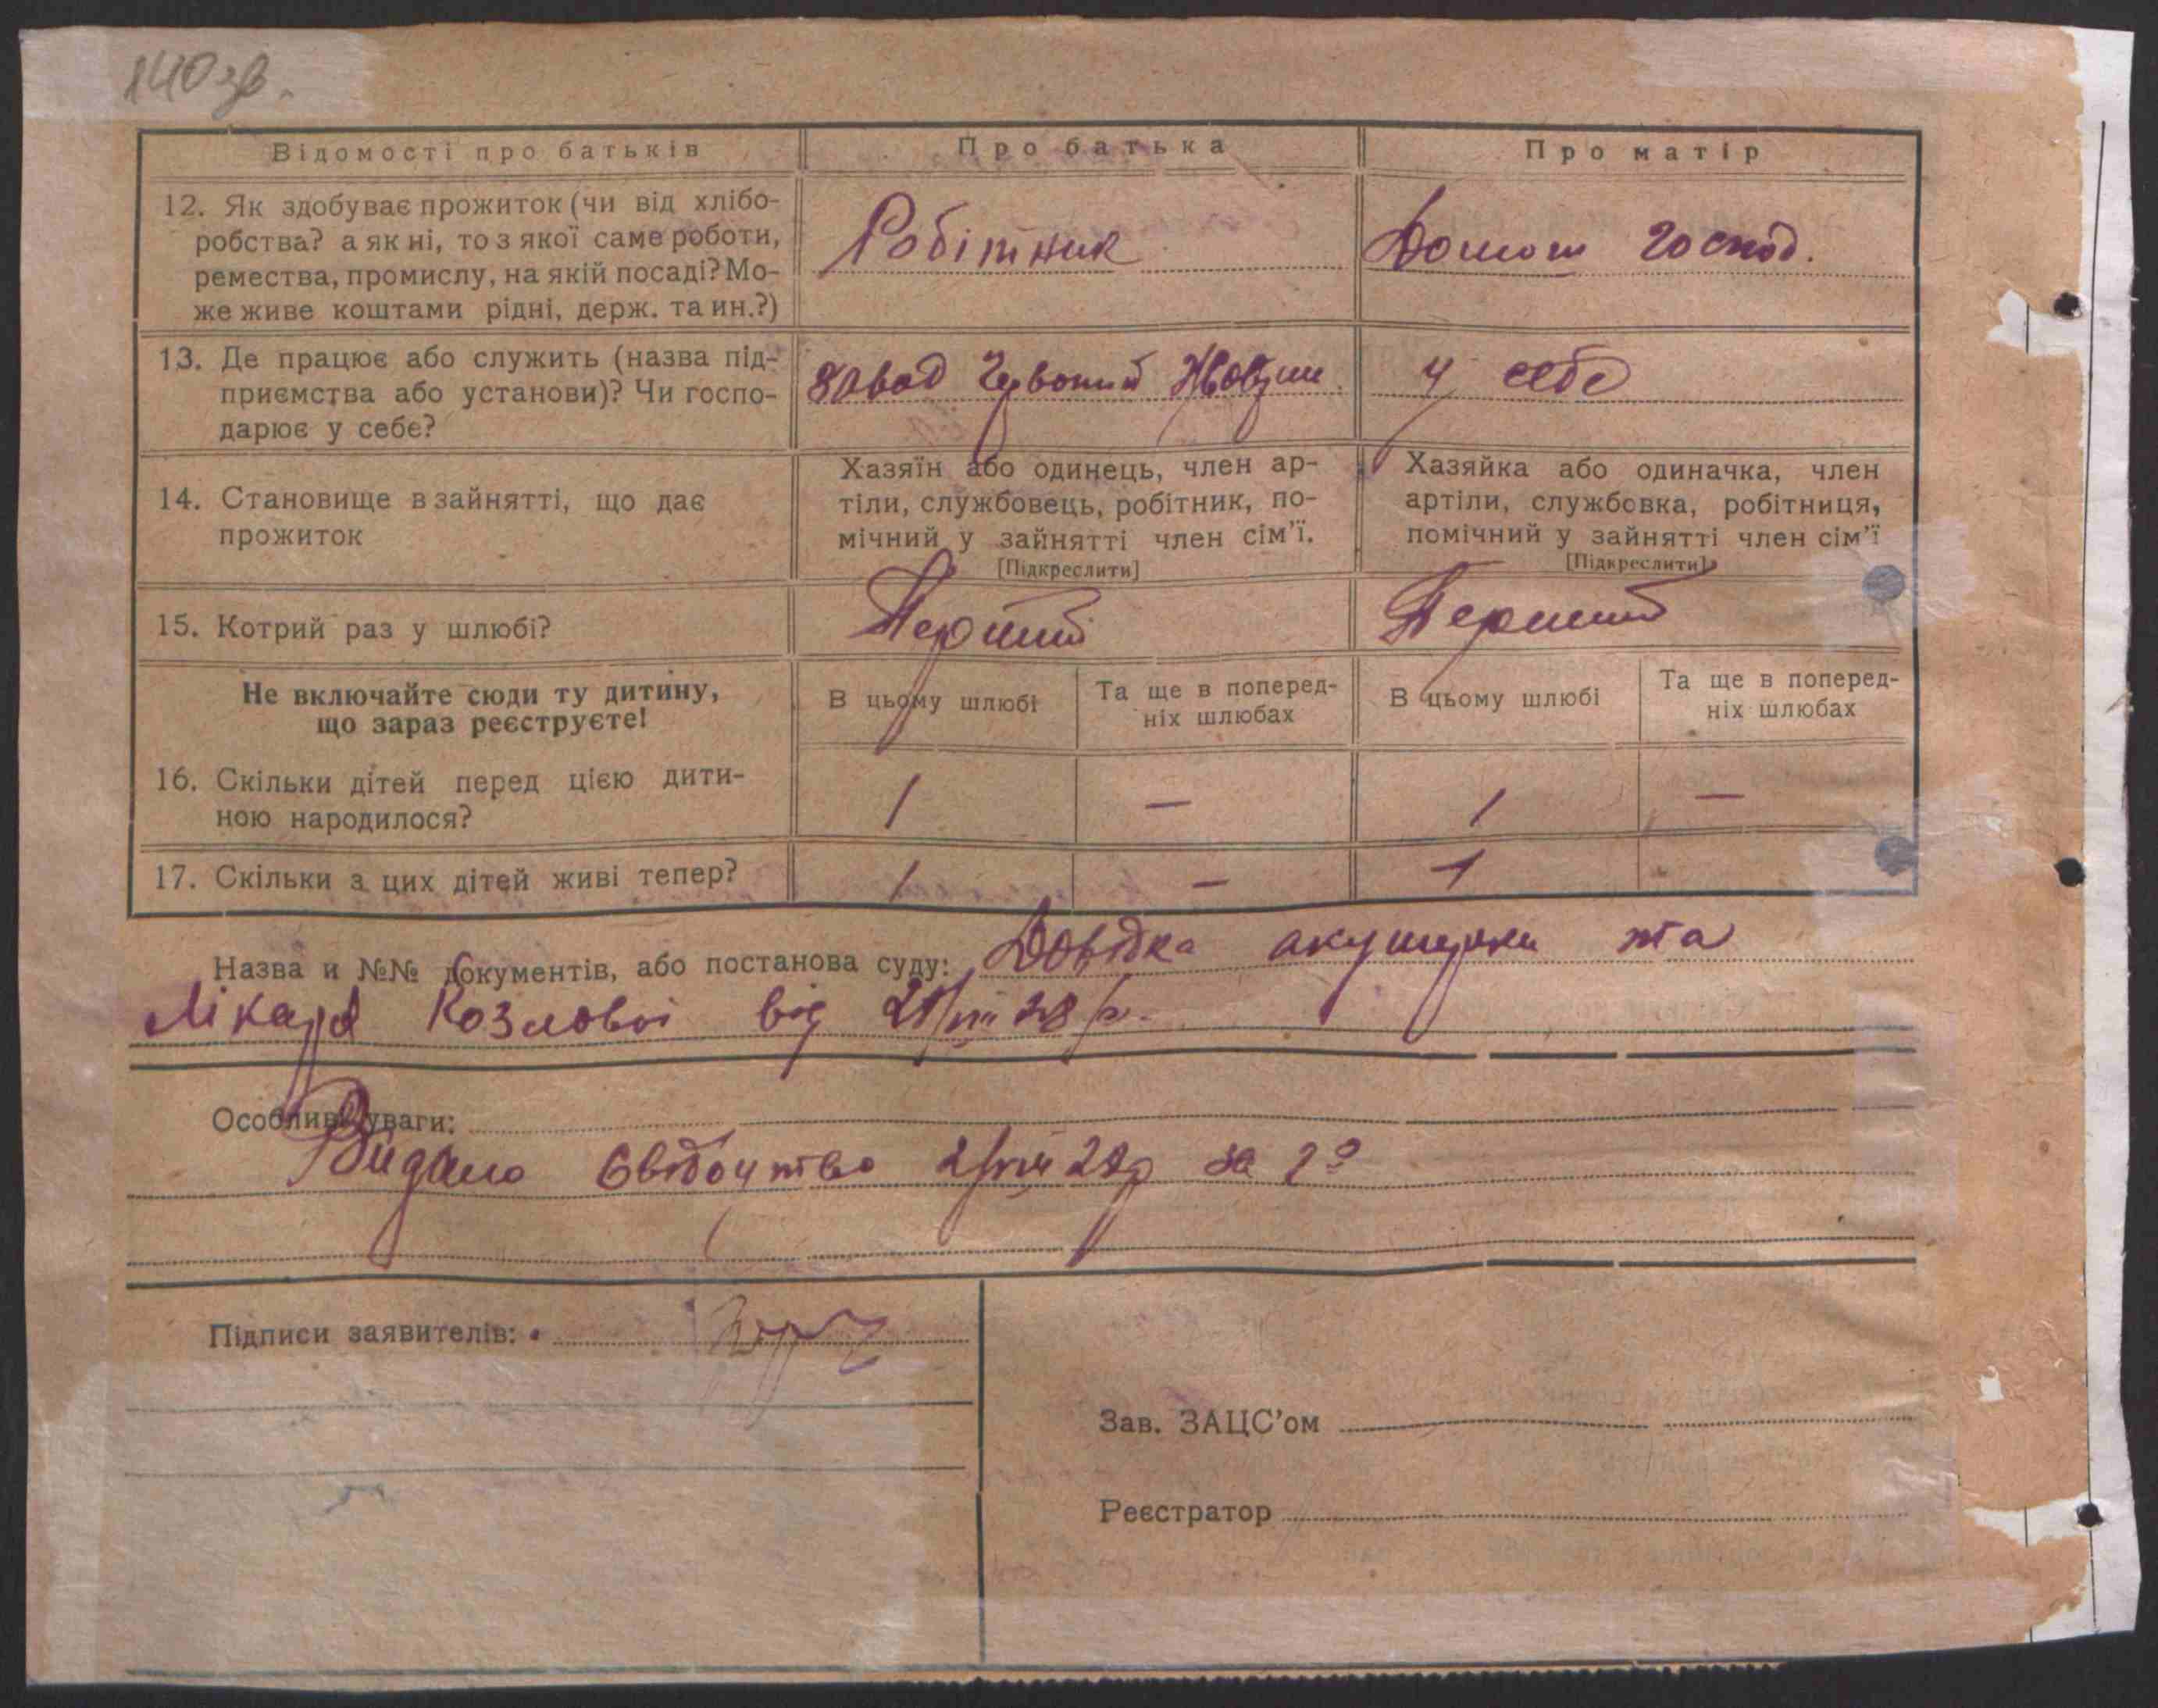 140 зв.
Відомості про батьків
Про батька
Про матір
12. Як здобуває прожиток (чи від хлібо-
робства? а як ні, то з якої саме роботи,
ремества, промислу, на якій посаді? Мо-
же живе коштами рідні, держ. та ин.?)
Робітник
Домот господ.
13. Де працює або служить (назва під-
приємства або установи)? Чи госпо-
дарює у себе?
завод Червоний
у себе
14. Становище в зайнятті, що дає
прожиток
Хазяїн або одинець, член ар-
тіли, службовець, робітник, по-
мічний у зайнятті член сім'ї.
[Підкреслити]
Хазяйка або одиначка, член
артіли, службовка, робітниця,
помічний у зайнятті член сім'ї
[Підкреслити]
15. Котрий раз у шлюбі?
Перший
Перший
Не включайте сюди ту дитину,
що зараз реєструєте!
В цьому шлюбі
Та ще в поперед-
ніх шлюбах
В цьому шлюбі
Та ще в поперед-
ніх шлюбах
16. Скільки дітей перед цією дити-
ною народилося?
1 — 1 —
17. Скільки з цих дітей живі тепер?
1 — 1
Назва и №№ документів, або постанова суду: Довідка акушерки та
Лікаря Козлової від 28 р.
Особливі уваги:
Видано Свідоцтво за
Підписи заявителів:
Зав. ЗАЦС'ом
Реєстратор